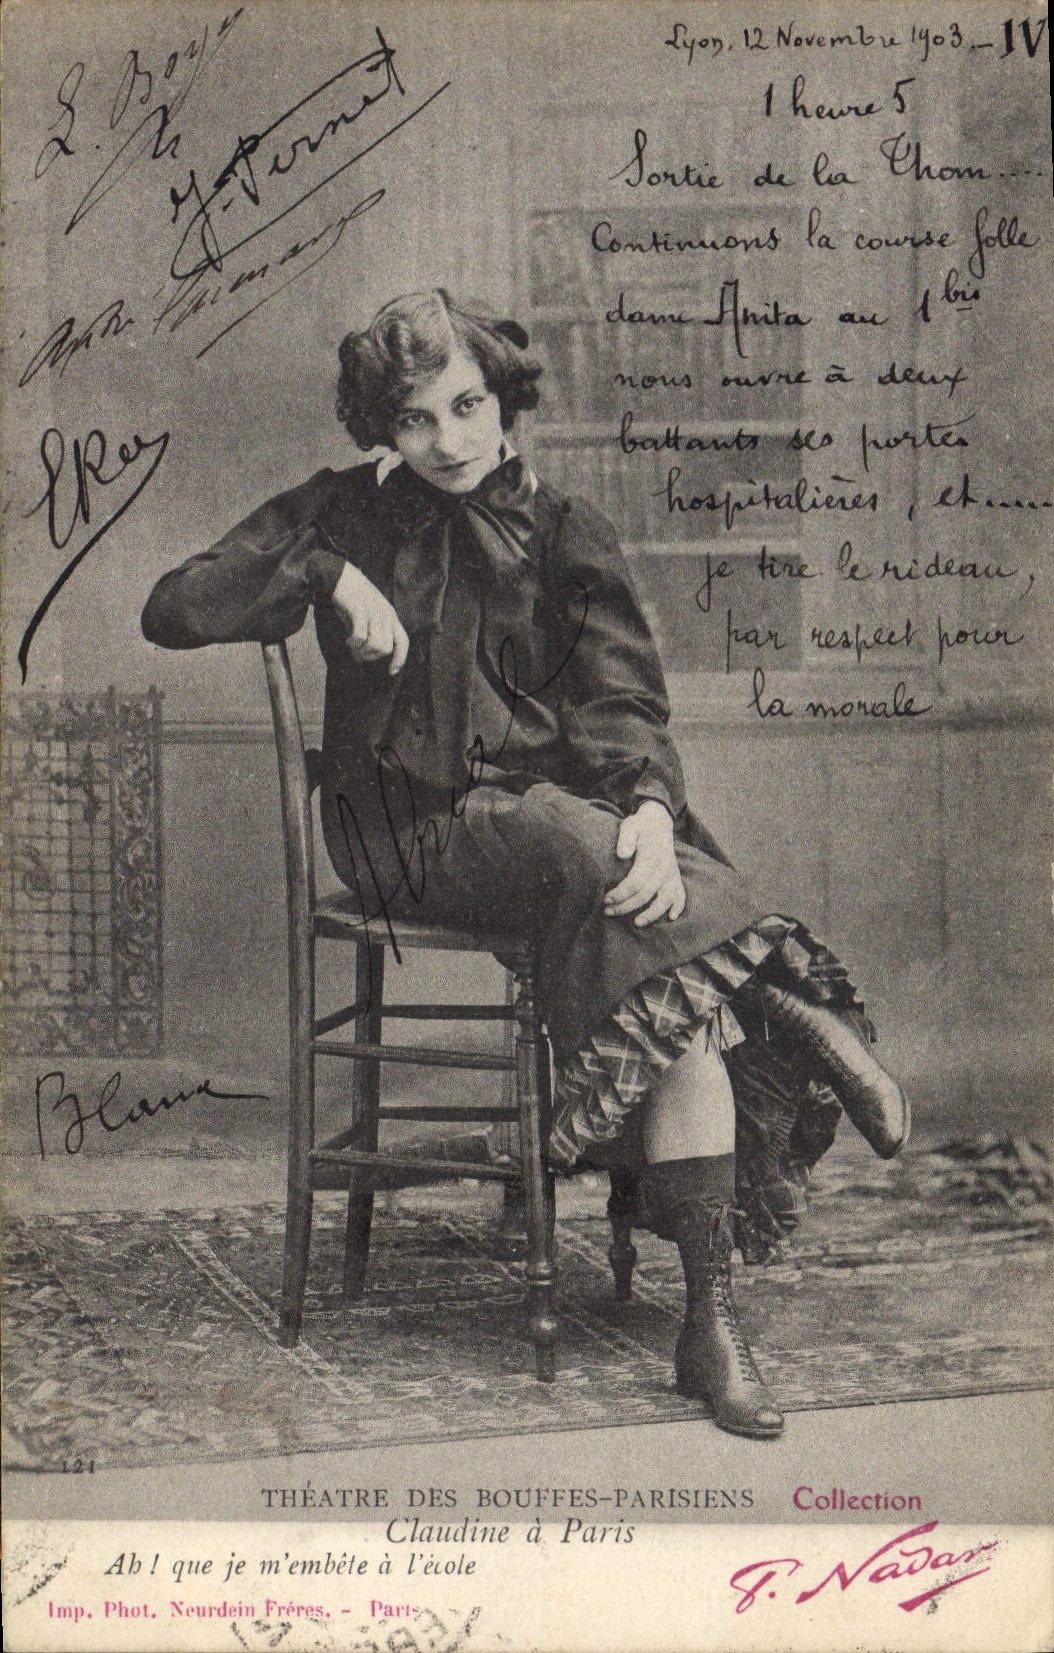 Lyon, 12 Novembre 1903.— IV
1 heure 5
Sortie de la Thom....
Continuons la course folle
dame Anita au 1 bis
nous ouvre à deux
battants ses portes
hospitalières, et.....
je tire le rideau,
par respect pour
la morale
L. Boyy
J. Pernet
André
Blanc
121
THÉATRE DES BOUFFES-PARISIENS Collection
Claudine à Paris
Ah ! que je m'embête à l'école
P. Nadar
Imp. Phot. Neurdein Frères. - Paris